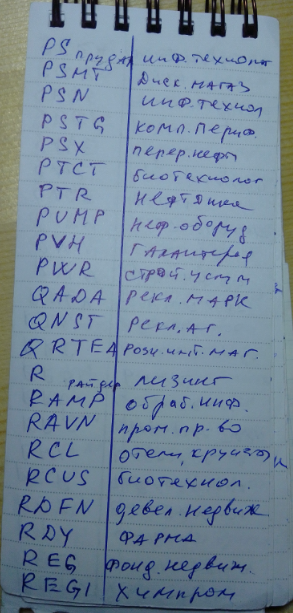 PS инф. технолог
PSMT Диск. магаз
PSN инф. технол
PSTG комп. периф.
PSX перер. нефт
PTCT биотехнолог
PTR нефтянка
PUMP неф. оборуд
PVH галантерея
PWR строй. услуги
QADA рекл. марк
QNST рекл. аг.
QRTEA розн. инт. маг.
R райдер лизинг
RAMP обраб. инф.
RAVN пром. пр-во
RCL отели, круизы
RCUS биотехнол.
RDFN девел. недвиж
RDY фарма
REG фонд. недвиж.
REGI химпром